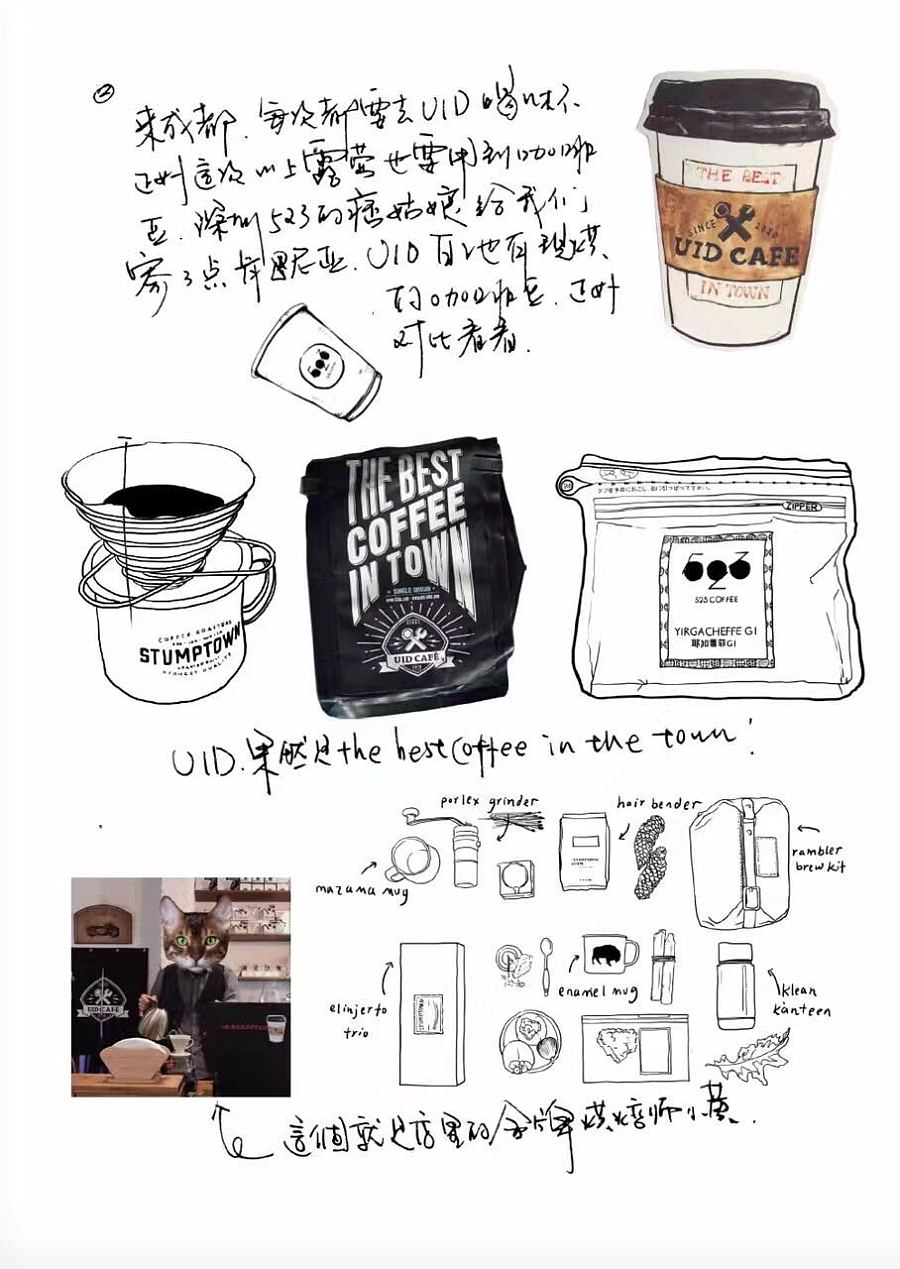 ②
来成都.每次都要去UID喝一杯
正好這次山上露营也要用到咖啡
豆.深圳523的痞姑娘给我们
寄了点耶加雪菲.UID百地有現烘
的咖啡豆.正好
对比看看.
THE BEST
SINCE 2010
UID CAFE
IN TOWN
523
COFFEE ROASTERS
STUMPTOWN
THE BEST
COFFEE
IN TOWN
SINGLE ORIGIN
UID CAFE
ZIPPER
523
523 COFFEE
YIRGACHEFFE G1
耶加雪菲G1
UID.果然是the best coffee in the town!
porlex grinder
hair bender
mazama mug
rambler
brew kit
elinjerto
trio
enamel mug
klean
kanteen
UID CAFE
這個就是店里的金牌烘焙师小黄.